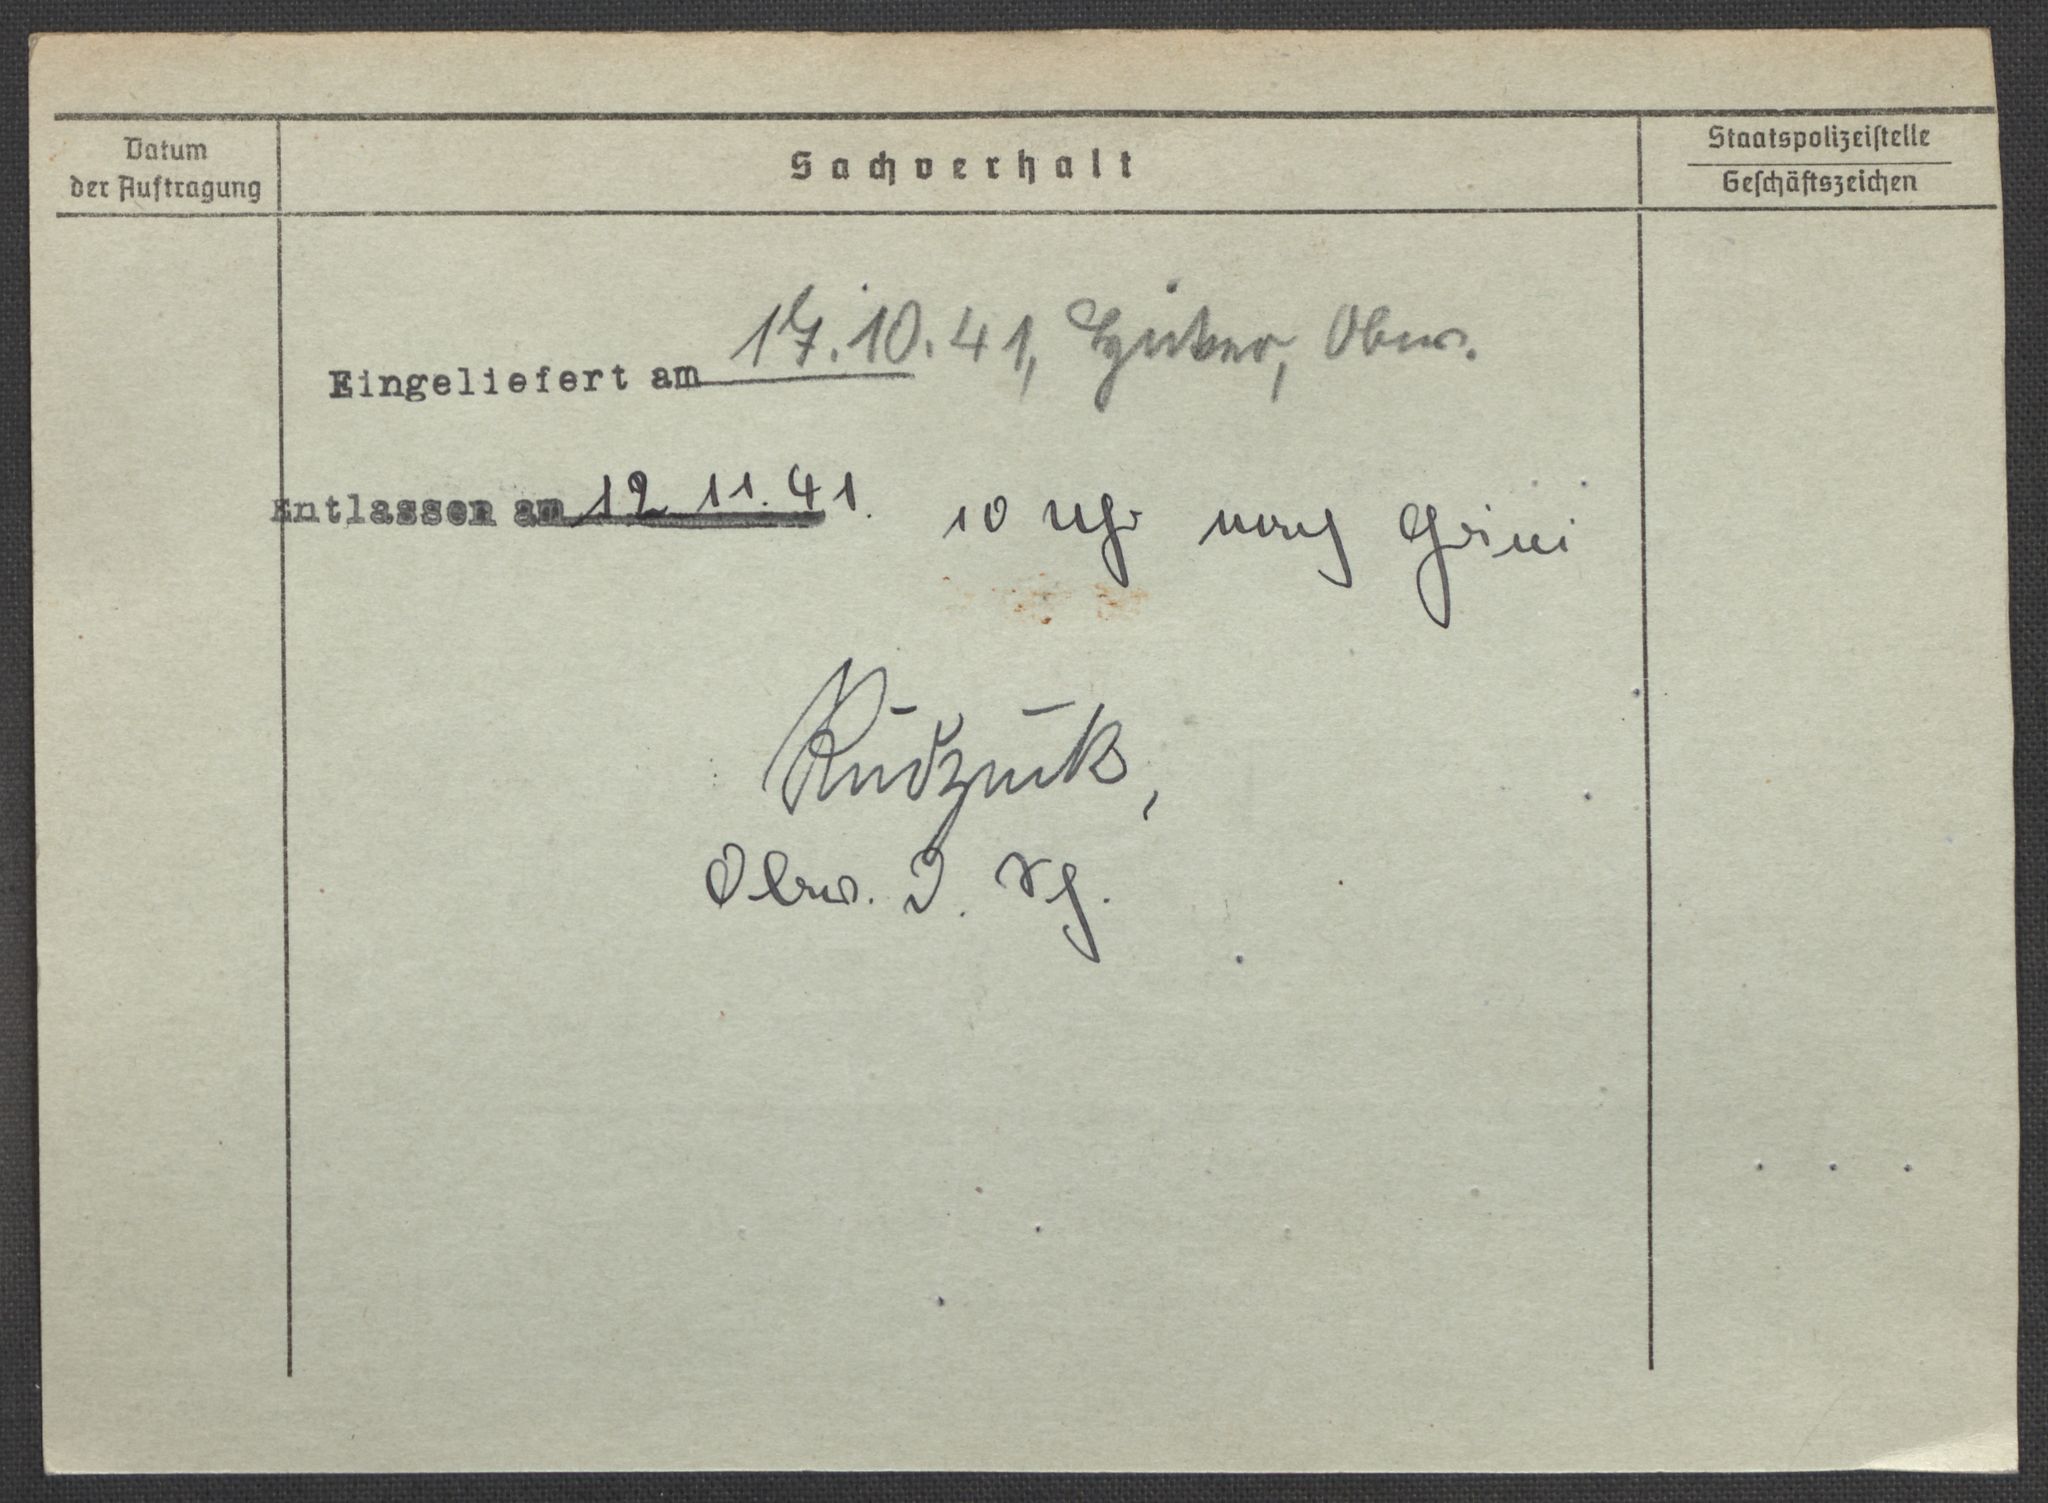 Datum
der Auftragung
Sachverhalt
Staatspolizeistelle
Geschäftszeichen
Eingeliefert am 17.10.41, Obw.
Entlassen am 12 11.41. 10 Uhr nach Grini
Rudzuck,
Obw. d. Sch.